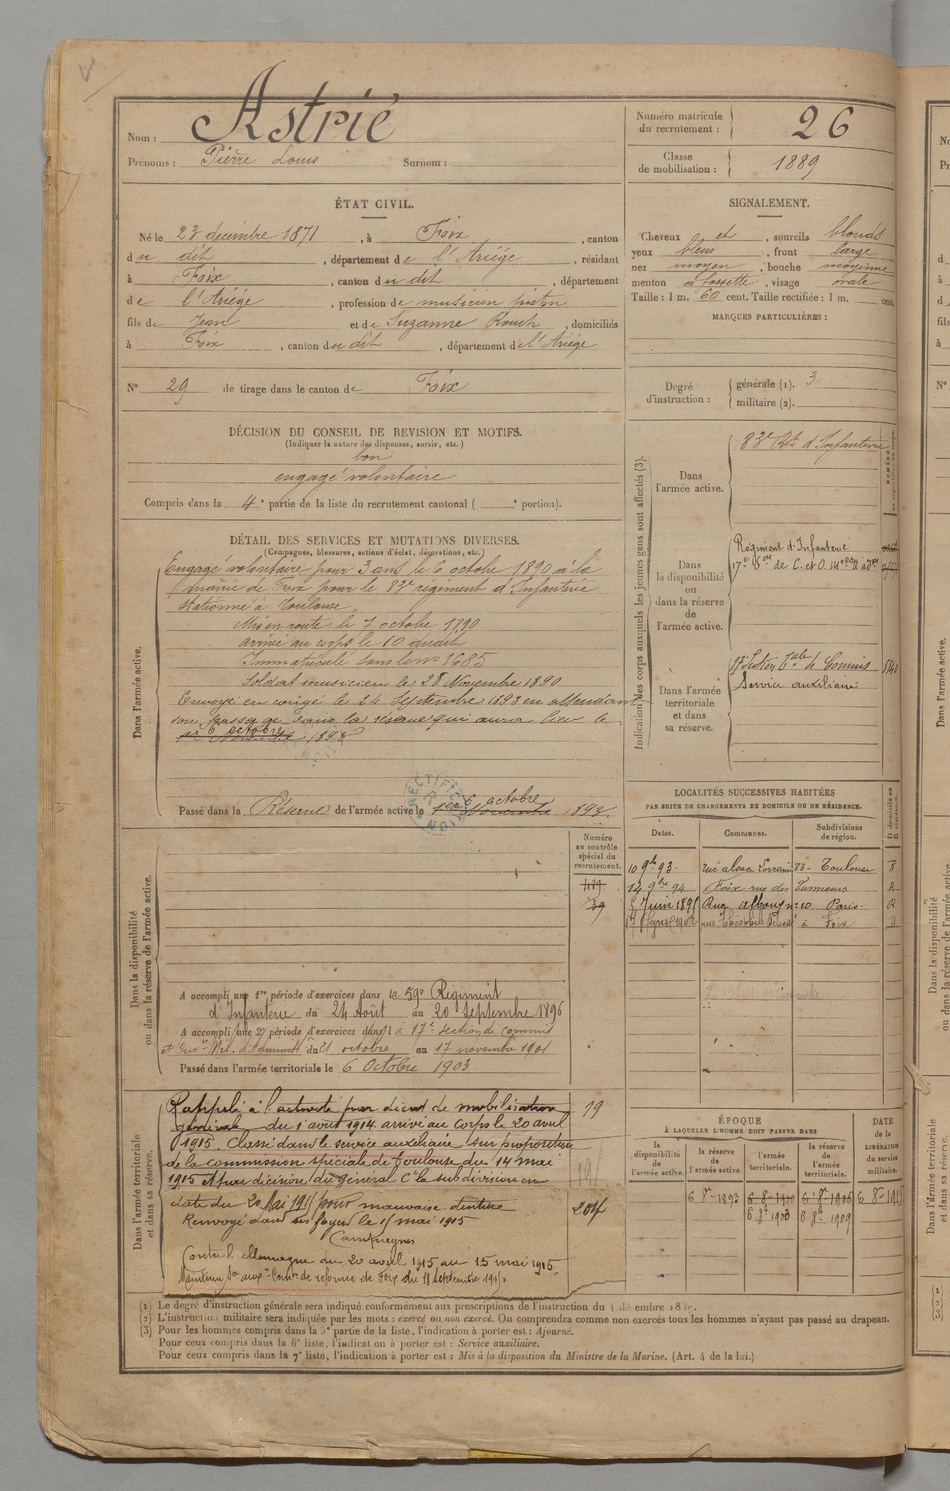 Nom : Astrié
Prénoms : Pierre Louis Surnom :
Numéro matricule du recrutement : 26
Classe de mobilisation : 1889
ÉTAT CIVIL.
Né le 23 décembre 1871, à Foix, canton
du dit, département de l'Ariége, résidant
à Foix, canton du dit, département
de l'Ariége, profession de musicien
fils de Jean et de Suzanne Rouch, domiciliés
à Foix, canton du dit, département de l'Ariége
N° 29 de tirage dans le canton de Foix
SIGNALEMENT.
Cheveux et, sourcils blonds
yeux bleus, front large
nez moyen, bouche moyenne
menton à fossette, visage ovale
Taille : 1 m. 60 cent. Taille rectifiée : 1 m. cent.
MARQUES PARTICULIÈRES :
Degré d'instruction : générale (1). 3
militaire (2).
DÉCISION DU CONSEIL DE REVISION ET MOTIFS.
(Indiquer la nature des dispenses, sursis, etc.)
bon
engagé volontaire
Compris dans la 4e partie de la liste du recrutement cantonal ( e portion).
DÉTAIL DES SERVICES ET MUTATIONS DIVERSES.
(Campagnes, blessures, actions d'éclat, décorations, etc.)
Dans l'armée active.
Engagé volontaire pour 3 ans le 6 octobre 1890 à la
mairie de Foix pour le 83e régiment d'Infanterie
stationné à Toulouse.
Mis en route le 7 octobre 1890
arrivé au corps le 10 dudit
Immatriculé sous le no 1685
Soldat musicien le 28 Novembre 1890
Envoyé en congé le 24 Septembre 1893 en attendant
son passage dans la réserve qui aura lieu le
6 octobre
1er Novembre 1893
Passé dans la Réserve de l'armée active le 1er Novembre 6 octobre 1893.
RECTIFICATION
Numéro au contrôle spécial du recrutement.
Dans la disponibilité ou dans la réserve de l'armée active.
A accompli une 1re période d'exercices dans le 59e Régiment
d'Infanterie du 24 Août au 20 Septembre 1896
A accompli une 2e période d'exercices dans la 17e section de commis
et Ouvrs Mil. d'Admon du 21 octobre au 17 novembre 1901
Passé dans l'armée territoriale le 6 Octobre 1903
Dans l'armée territoriale et dans sa réserve.
Rappelé à l'activité par décret de mobilisation
générale du 1 août 1914. arrivé au corps le 20 avril
1915. Classé dans le service auxiliaire sur proposition
de la commission spéciale de Toulouse du 14 mai
1915 et par décision du général Ct la subdivision en
date du 20 Mai 1915 pour mauvaise denture
Renvoyé dans ses foyers le 15 mai 1915
Campagnes
Contre l'allemagne du 20 avril 1915 au 15 mai 1915.
Maintenu Sce auxre Comon de réforme de Foix du 18 Septembre 1915.
99
204
Indication des corps auxquels les jeunes gens sont affectés (3).
Dans l'armée active.
83e Rt d'Infanterie
Dans la disponibilité ou dans la réserve de l'armée active.
Régiment d'Infanterie
17e Son de C. et O.
Dans l'armée territoriale et dans sa réserve.
17e Section de Commis
Service auxiliaire
LOCALITÉS SUCCESSIVES HABITÉES
PAR SUITE DE CHANGEMENTS DE DOMICILE OU DE RÉSIDENCE.
Dates. Communes. Subdivisions de région.
10 9bre 93. rue alsace Lorraine 83 - Toulouse R
14 9bre 94 Foix rue des Tanneurs R
Juin 189 Rue 10 Paris. R
à Foix D
ÉPOQUE
À LAQUELLE L'HOMME DOIT PASSER DANS
la disponibilité de l'armée active.
la réserve de l'armée active.
l'armée territoriale.
la réserve de l'armée territoriale.
DATE de la LIBÉRATION du service militaire.
6 8bre 1893 6 8bre 1900 6 8bre 1906 6 8bre 1915
6 8bre 1903 6 8bre 1909
(1) Le degré d'instruction générale sera indiqué conformément aux prescriptions de l'instruction du 4 décembre 18
(2) L'instruction militaire sera indiquée par les mots : exercé ou non exercé. On comprendra comme non exercés tous les hommes n'ayant pas passé au drapeau.
(3) Pour les hommes compris dans la 5e partie de la liste, l'indication à porter est : Ajourné.
Pour ceux compris dans la 6e liste, l'indication à porter est : Service auxiliaire.
Pour ceux compris dans la 7e liste, l'indication à porter est : Mis à la disposition du Ministre de la Marine. (Art. 4 de la loi.)